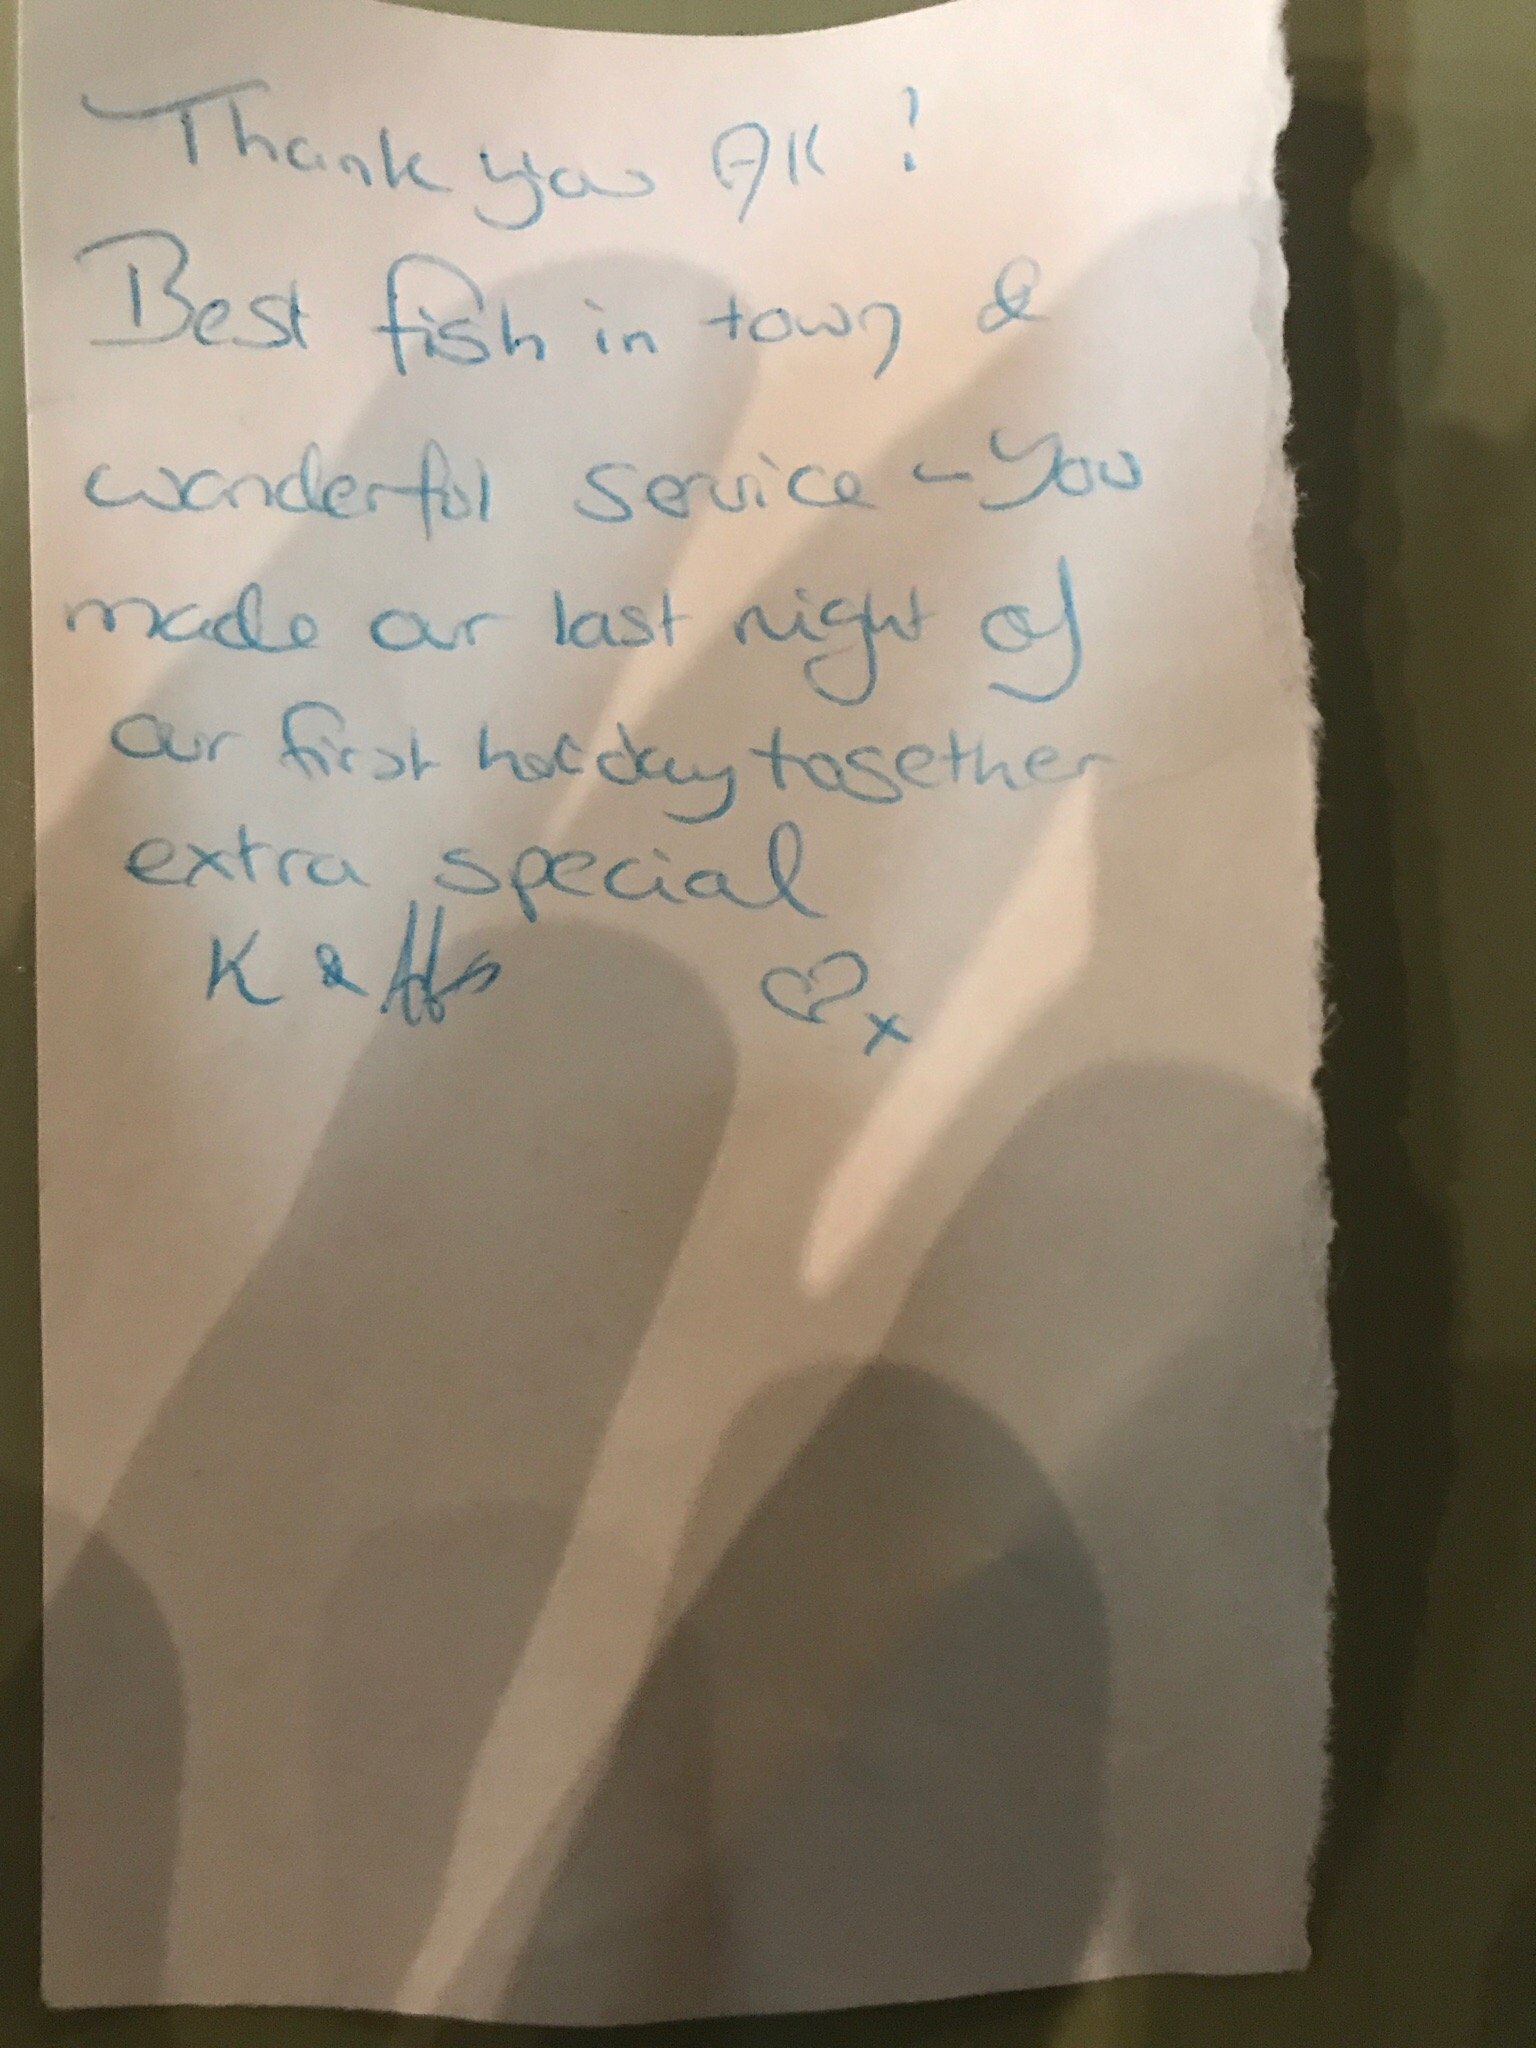 Thank you AK!
Best fish in town &
wonderful service - You
made our last night of
our first holiday together
extra special
K &
x